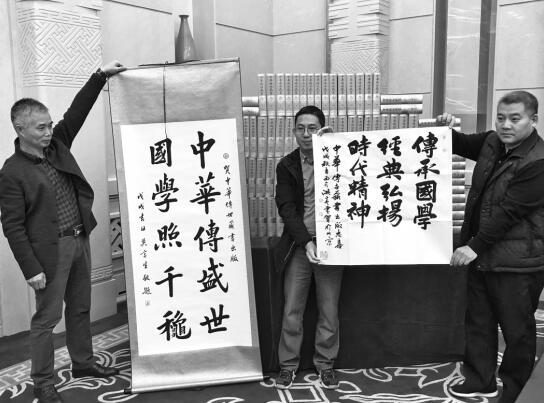 賀中華傳世藏書出版
中華傳盛世
國學照千穐
戊戌春日吳言生敬題
傳承國學
經典弘揚
時代精神
中華傳世藏書出版志喜
戊戌